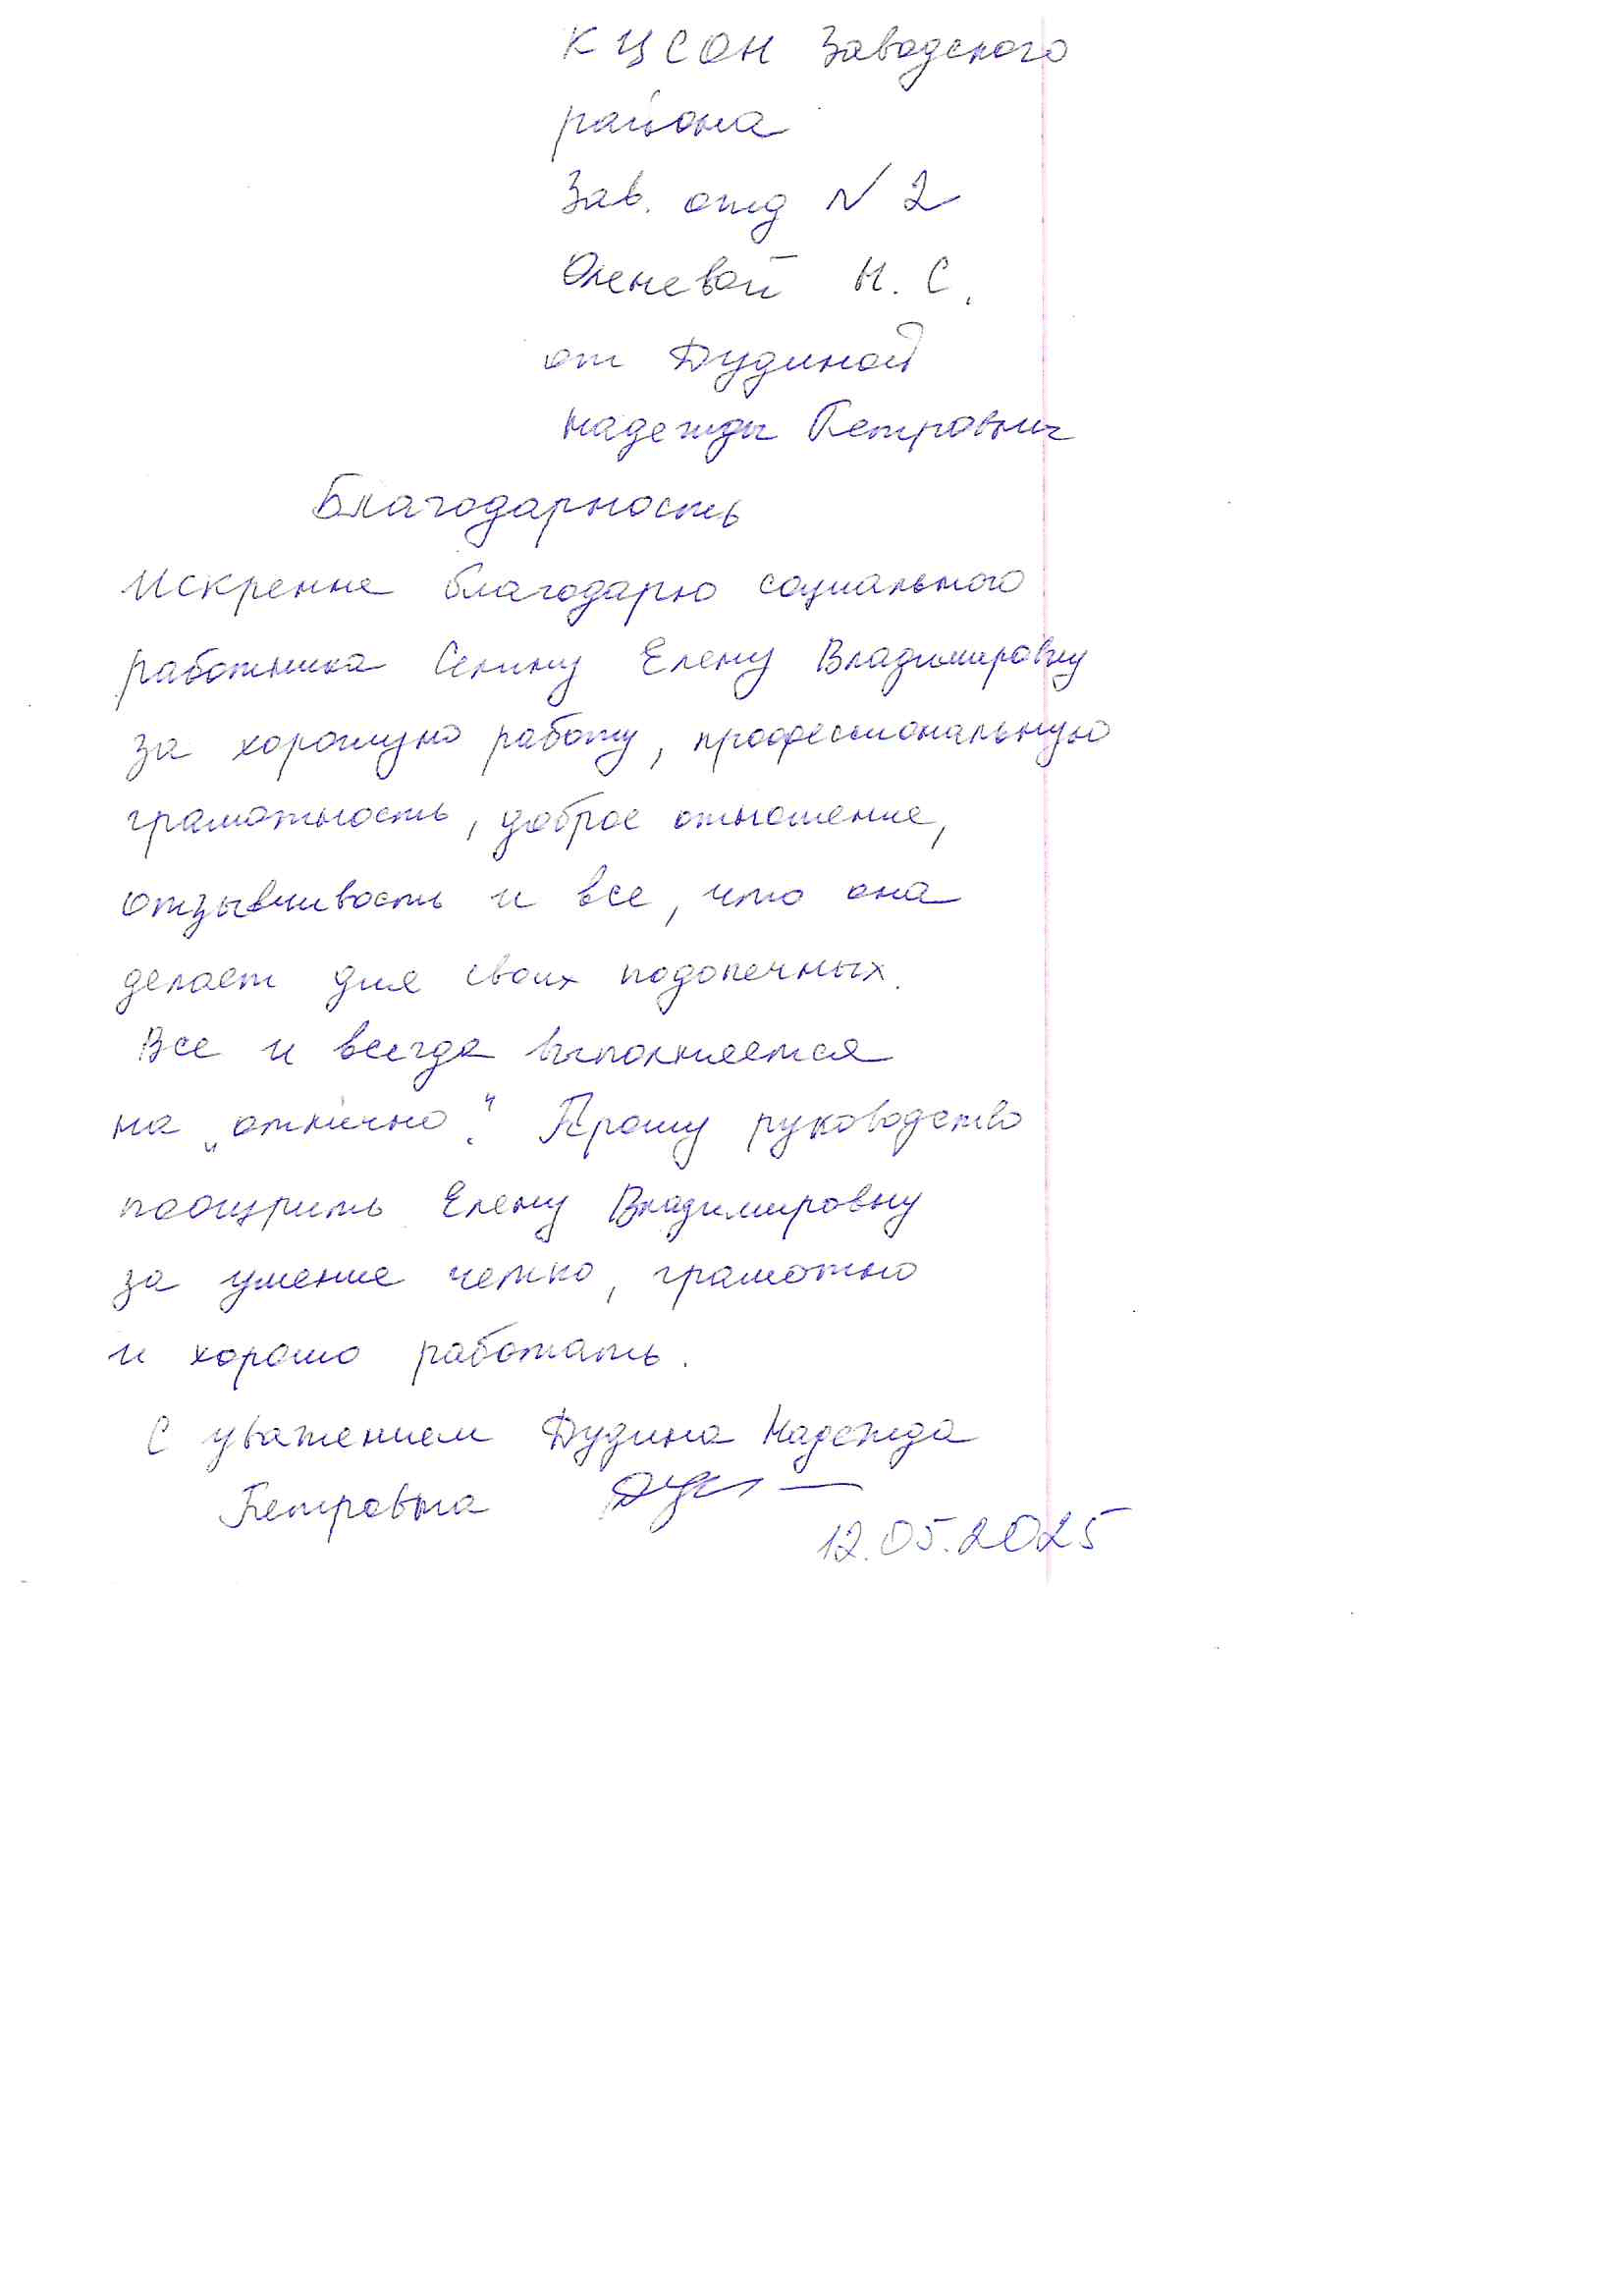 КЦСОН Заводского
района
Зав. отд N 2
Оленевой Н. С.
от Дудиной
Надежды Петровны
Благодарность
Искренне благодарю социального
работника Селину Елену Владимировну
за хорошую работу, профессиональную
грамотность, доброе отношение,
отзывчивость и все, что она
делает для своих подопечных.
Все и всегда выполняется
на „отлично“. Прошу руководство
поощрить Елену Владимировну
за умение четко, грамотно
и хорошо работать.
С уважением Дудина Надежда
Петровна
12.05.2025